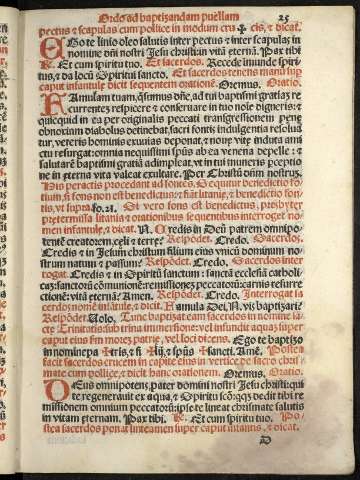 Ordo ad baptizandam puellam 25
pectus & scapulas cum pollice in modum cru ✠ cis, & dicat.
EGo te linio oleo salutis inter pectus & inter scapulas, in
nomine dñi nostri Jesu christi in vitã eternã. Pax tibi
℟. Et cum spiritu tuo. Et sacerdos. Recede inmunde spiri-
tus, & da locũ Spiritui sancto. Et sacerdos tenens manũ sup
caput infantule dicit sequentem orationē. Oremus. Oratio.
FAmulam tuam, q̃sumus dñe, ad tui baptismi gratiaz re
currentez respicere & conseruare in tuo nole digneris: &
quicquid in ea per originalis peccati transgressionem pene
obnoxiam diabolus detinebat, sacri fontis indulgentia resolui
tur, veteris hominis exuuias deponat, & noue vite induta ami
ctu resurgat: omnia nequissimi spūs ab ea venena depelle: &
salutarē baptismi gratiã adimpleat, vt in tui muneris pceptio
ne in eterna vita valeat exultare. Per Christũ dñm nostruz.
His peractis procedant ad fontes. Si
fons non est benedictus; fiãt litanie, & benedictio fon
tis, vt supra fo. 21. Si vero fons est benedictus, ptisbyter
pretermissa litania & orationibus sequentibus interroget no-
men infantule, & dicat. N. Credis in Deũ patrem omnipo-
tentē creatorem celi & terre? Respõdet. Credo. Sacerdos.
Credis & in Jesum christum filium eius vnicũ dominum no-
strum natum & passum? Respõdet. Credo. Sacerdos inter
rogat. Credis & in Spiritũ sanctum: sanctã ecclesiã catholi-
cã: sanctorũ cõmunionē: remissionez peccatorũ: carnis resurre
ctionē: vitã eternã? Amen. Respõdet. Credo. Interrogat sa
cerdos nomē infãtule, & dicit. Famula Dei, N. vis baptizari?
Respõdet. Uolo. Tunc baptizat eam sacerdos in nomine sã-
cte Trinitatis sub trina immersione: vel infundit aquaz super
caput eius
in nomine pa✠tris, & fi✠lij, & spūs✠sancti. Amē. Postea
facit sacerdos crucem in capite eius in vertice de sacro chris-
mate cum pollice, & dicit hanc orationem. Oremus. Oratio.
DEus omnipotens, pater domini nostri Jesu christi: qui
te regenerauit ex aqua, & Spiritu sctõ: qq3 dedit tibi re
missionem omnium peccatorũ: ipse te liniat chrismate salutis
in vitam eternam. Pax tibi. ℟. Et cum spiritu tuo. Po-
stea sacerdos ponat linteamen super caput infantis, & dicat.
D